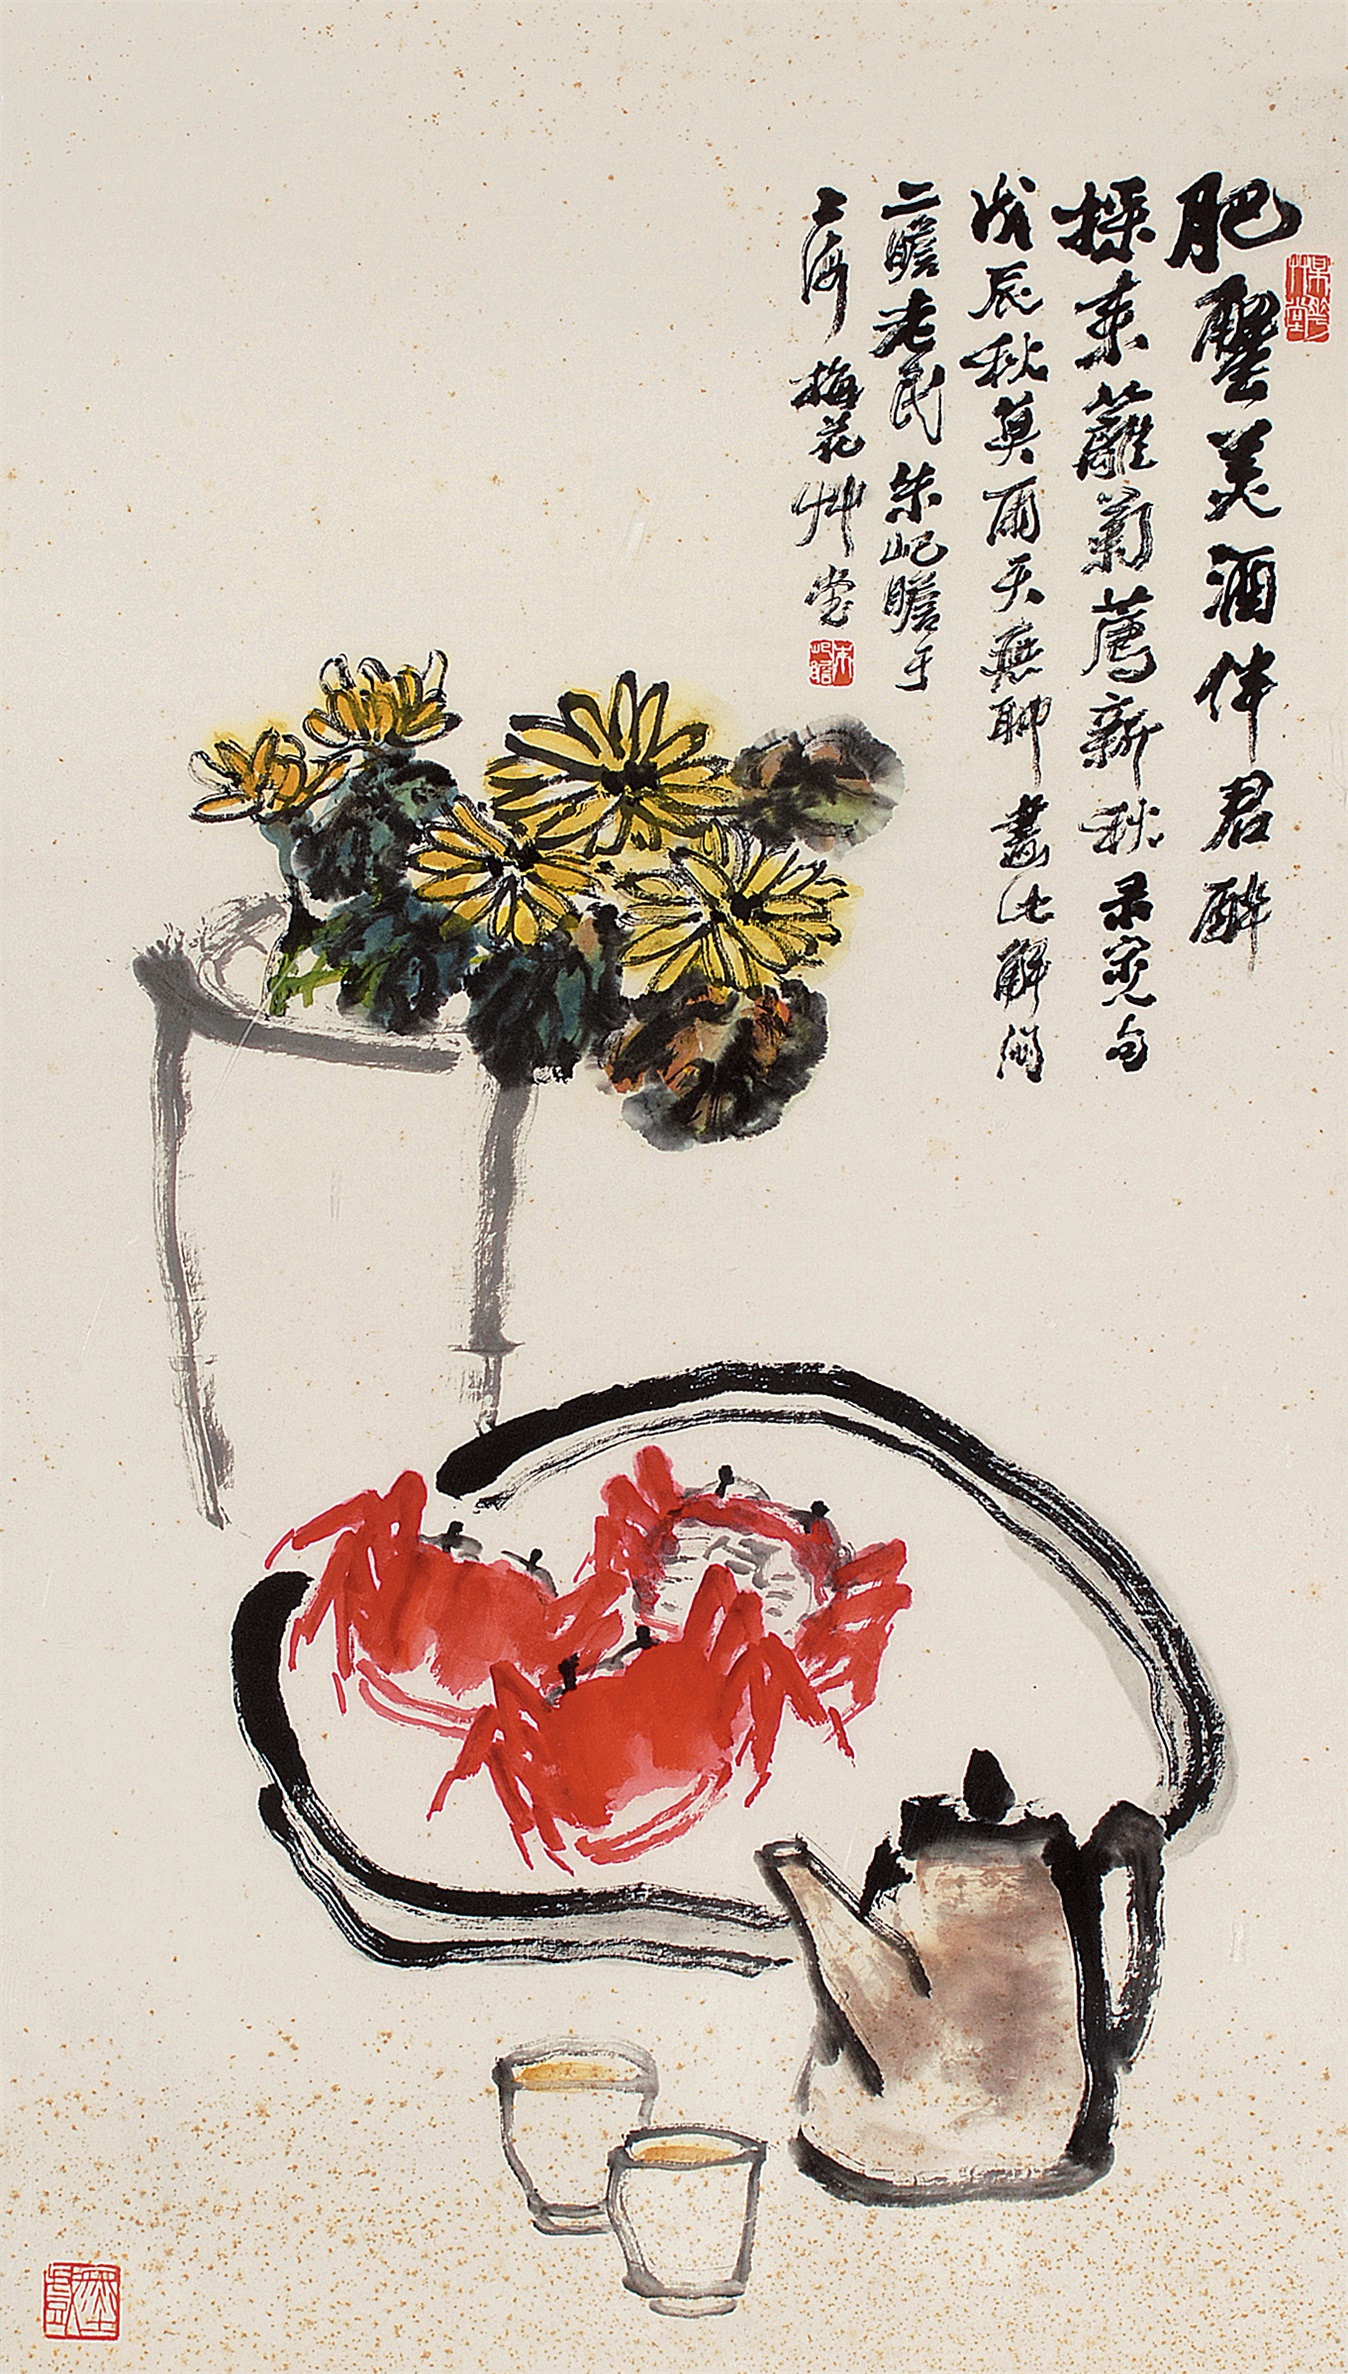 肥蟹美酒伴君醉
採東籬菊薦新秋录宋人句
戊辰秋莫雨天無聊畫此解悶
二瞻老民朱屺瞻于
上海梅花艸堂
朱屺瞻